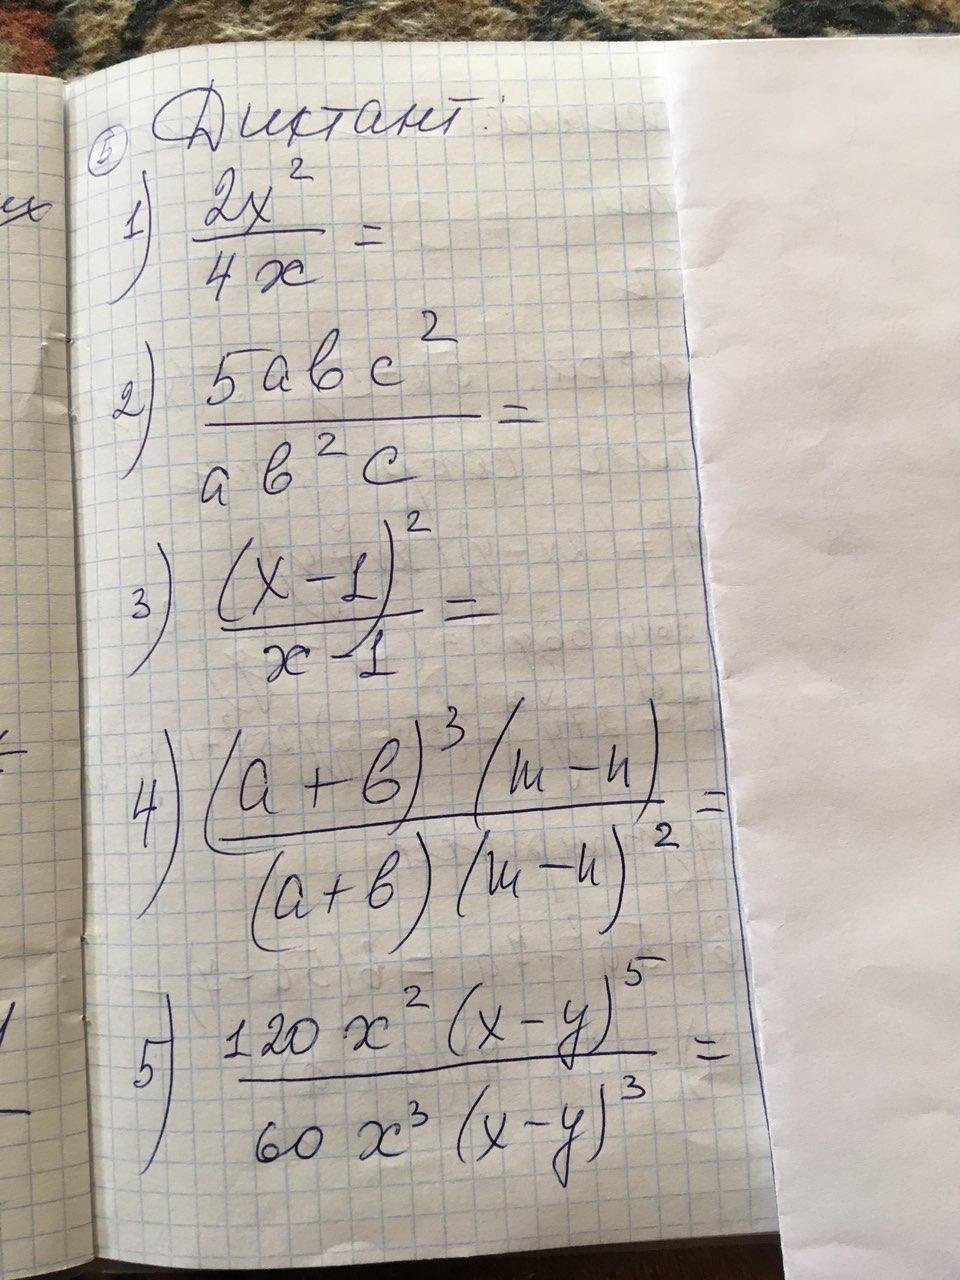 5 Диктант:
1) 2x²
4x =
2) 5abc²
ab²c =
3) (x-1)²
x-1 =
4) (a+b)³(m-n)
(a+b)(m-n)² =
5) 120x²(x-y)⁵
60x³(x-y)³ =